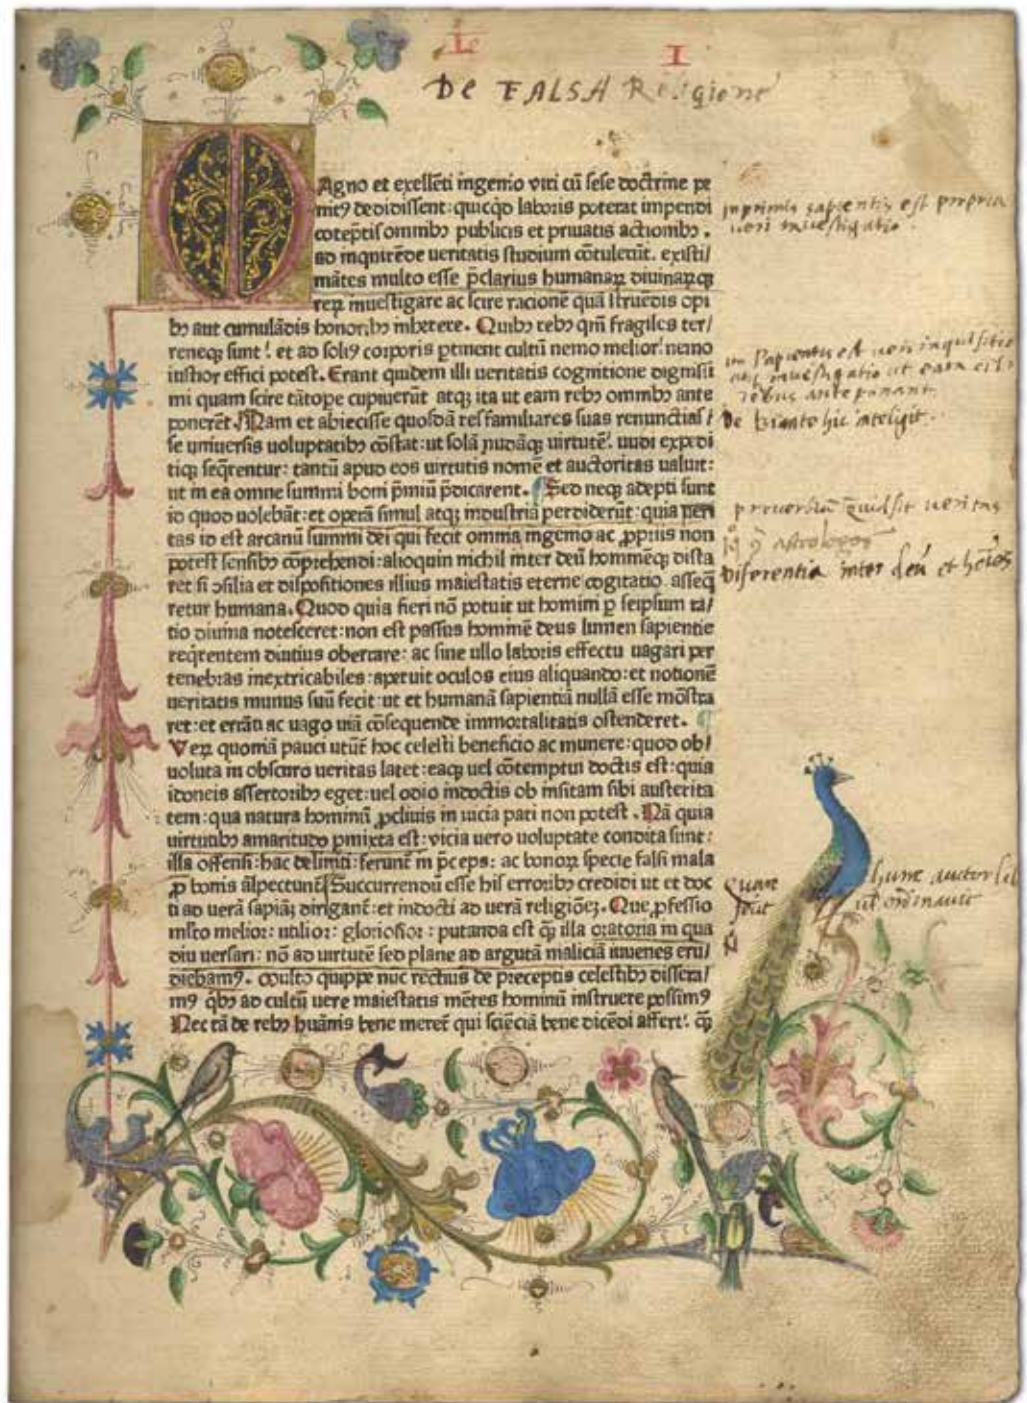 Le I
DE FALSA Religione
MAgno et exellēti ingenio viri cū sese doctrine pe
nitꝰ dedidissent: quicqd laboris poterat impendi
cōtēptis omnibꝫ publicis et priuatis actionibꝫ.
ad inquirēde ueritatis studium cōtulerūt. existi
mātes multo esse p̄clarius humanaꝝ diuinaꝝqꝫ
reꝝ inuestigare ac scire racionē quā struēdis opi
bꝫ aut cumulādis honoribꝫ inherere. Quibꝫ rebꝫ qm̄ fragiles ter/
reneqꝫ sunt: et ad soliꝰ corporis ꝑtinent cultū nemo melior: nemo
iustior effici potest. Erant quidem illi ueritatis cognitione dignissi
mi quam scire tātope cupiuerūt atqꝫ ita ut eam rebꝫ omnibꝫ ante
ponerēt. Nam et abiecisse quosdā res familiares suas renunctias/
se uniuersis uoluptatibꝫ cōstat: ut solā nudāqꝫ uirtutē: nudi expedi
tiqꝫ seqrentur: tantū apud eos uirtutis nomē et auctoritas ualuit:
ut in ea omne summi boni p̄miū p̄dicarent. Sed neqꝫ adepti sunt
id quod uolebāt: et operā simul atqꝫ industriā perdiderūt: quia ueri
tas id est arcanū summi dei qui fecit omnia ingenio ac ꝓpriis non
potest sensibꝫ cōprehendi: alioquin nichil inter deū hominēqꝫ dista
ret si ꝯsilia et dispositiones illius maiestatis eterne cogitatio asseq
retur humana. Quod quia fieri nō potuit ut homini ꝑ seipsum ra/
tio diuina notesceret: non est passus hominē deus lumen sapientie
reqrentem diutius oberrare: ac sine ullo laboris effectu uagari per
tenebras inextricabiles: aperuit oculos eius aliquando: et notionē
ueritatis munus suū fecit: ut et humanā sapientiā nullā esse mōstra
ret: et errāti ac uago uiā cōsequende immortalitatis ostenderet.
Veꝝ quoniā pauci utūt̄ hoc celesti beneficio ac munere: quod ob/
uoluta in obscuro ueritas latet: eaqꝫ uel cōtemptui doctis est: quia
idoneis assertoribꝫ eget: uel odio indoctis ob insitam sibi austerita
tem: qua natura hominū ꝓcliuis in uicia pati non potest. Nā quia
uirtutibꝫ amaritudo ꝑmixta est: vicia uero uoluptate condita sunt:
illa offensi: hac deliniti: ferunt̄ in p̄ceps: ac bonoꝝ specie falsi mala
ꝓ bonis āplectunt̄. Succurrendū esse his erroribꝫ credidi ut et doc
ti ad uerā sapiāꝫ dirigant̄: et indocti ad uerā religiōeꝫ. Que ꝓfessio
mlto melior: utilior: gloriosior: putanda est qꝫ illa oratoria in qua
diu uersati: nō ad uirtutē sed plane ad argutā maliciā iuuenes eru/
diebamꝰ. Multo quippe nūc rectius de preceptis celestibꝫ dissera/
mꝰ qbꝫ ad cultū uere maiestatis mētes hominū instruere possimꝰ
Nec tā de rebꝫ huānis bene meret̄ qui sciēciā bene dicēdi affert: qꝫ
inprimis sapientis est propria
ueri inuestigatio.
De biante hic inteligit.
prouerbiū Quid sit ueritas
astrologos
Diferentia inter deū et
hunc auctor
ut ordinauit